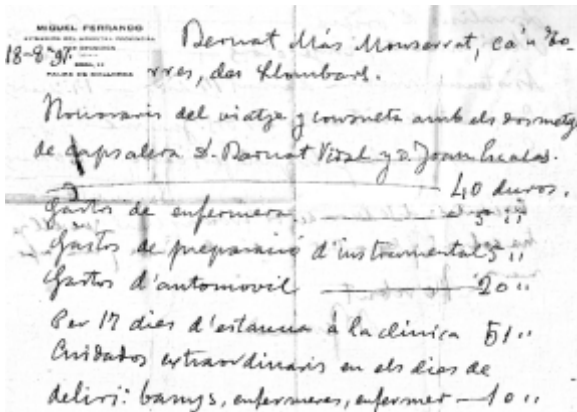 MIQUEL FERRANDO
PALMA DE MALLORCA
18-8-
Bernat Más Monserrat, ca'n To-
rres, des Llombars.
Honoraris del viatje y consulta amb els dos metges
de capsalera D. Bernat Vidal y D. Joan Escalas.
40 duros.
Gastos de enfermera 5 "
Gastos de preparació d'instrumental 5 "
Gastos d'automovil 20 "
Per 17 dies d'estancia á la clínica 51 "
Cuidados extraordinaris en els dies de
deliri: banys, enfermeres, enfermer 10 "